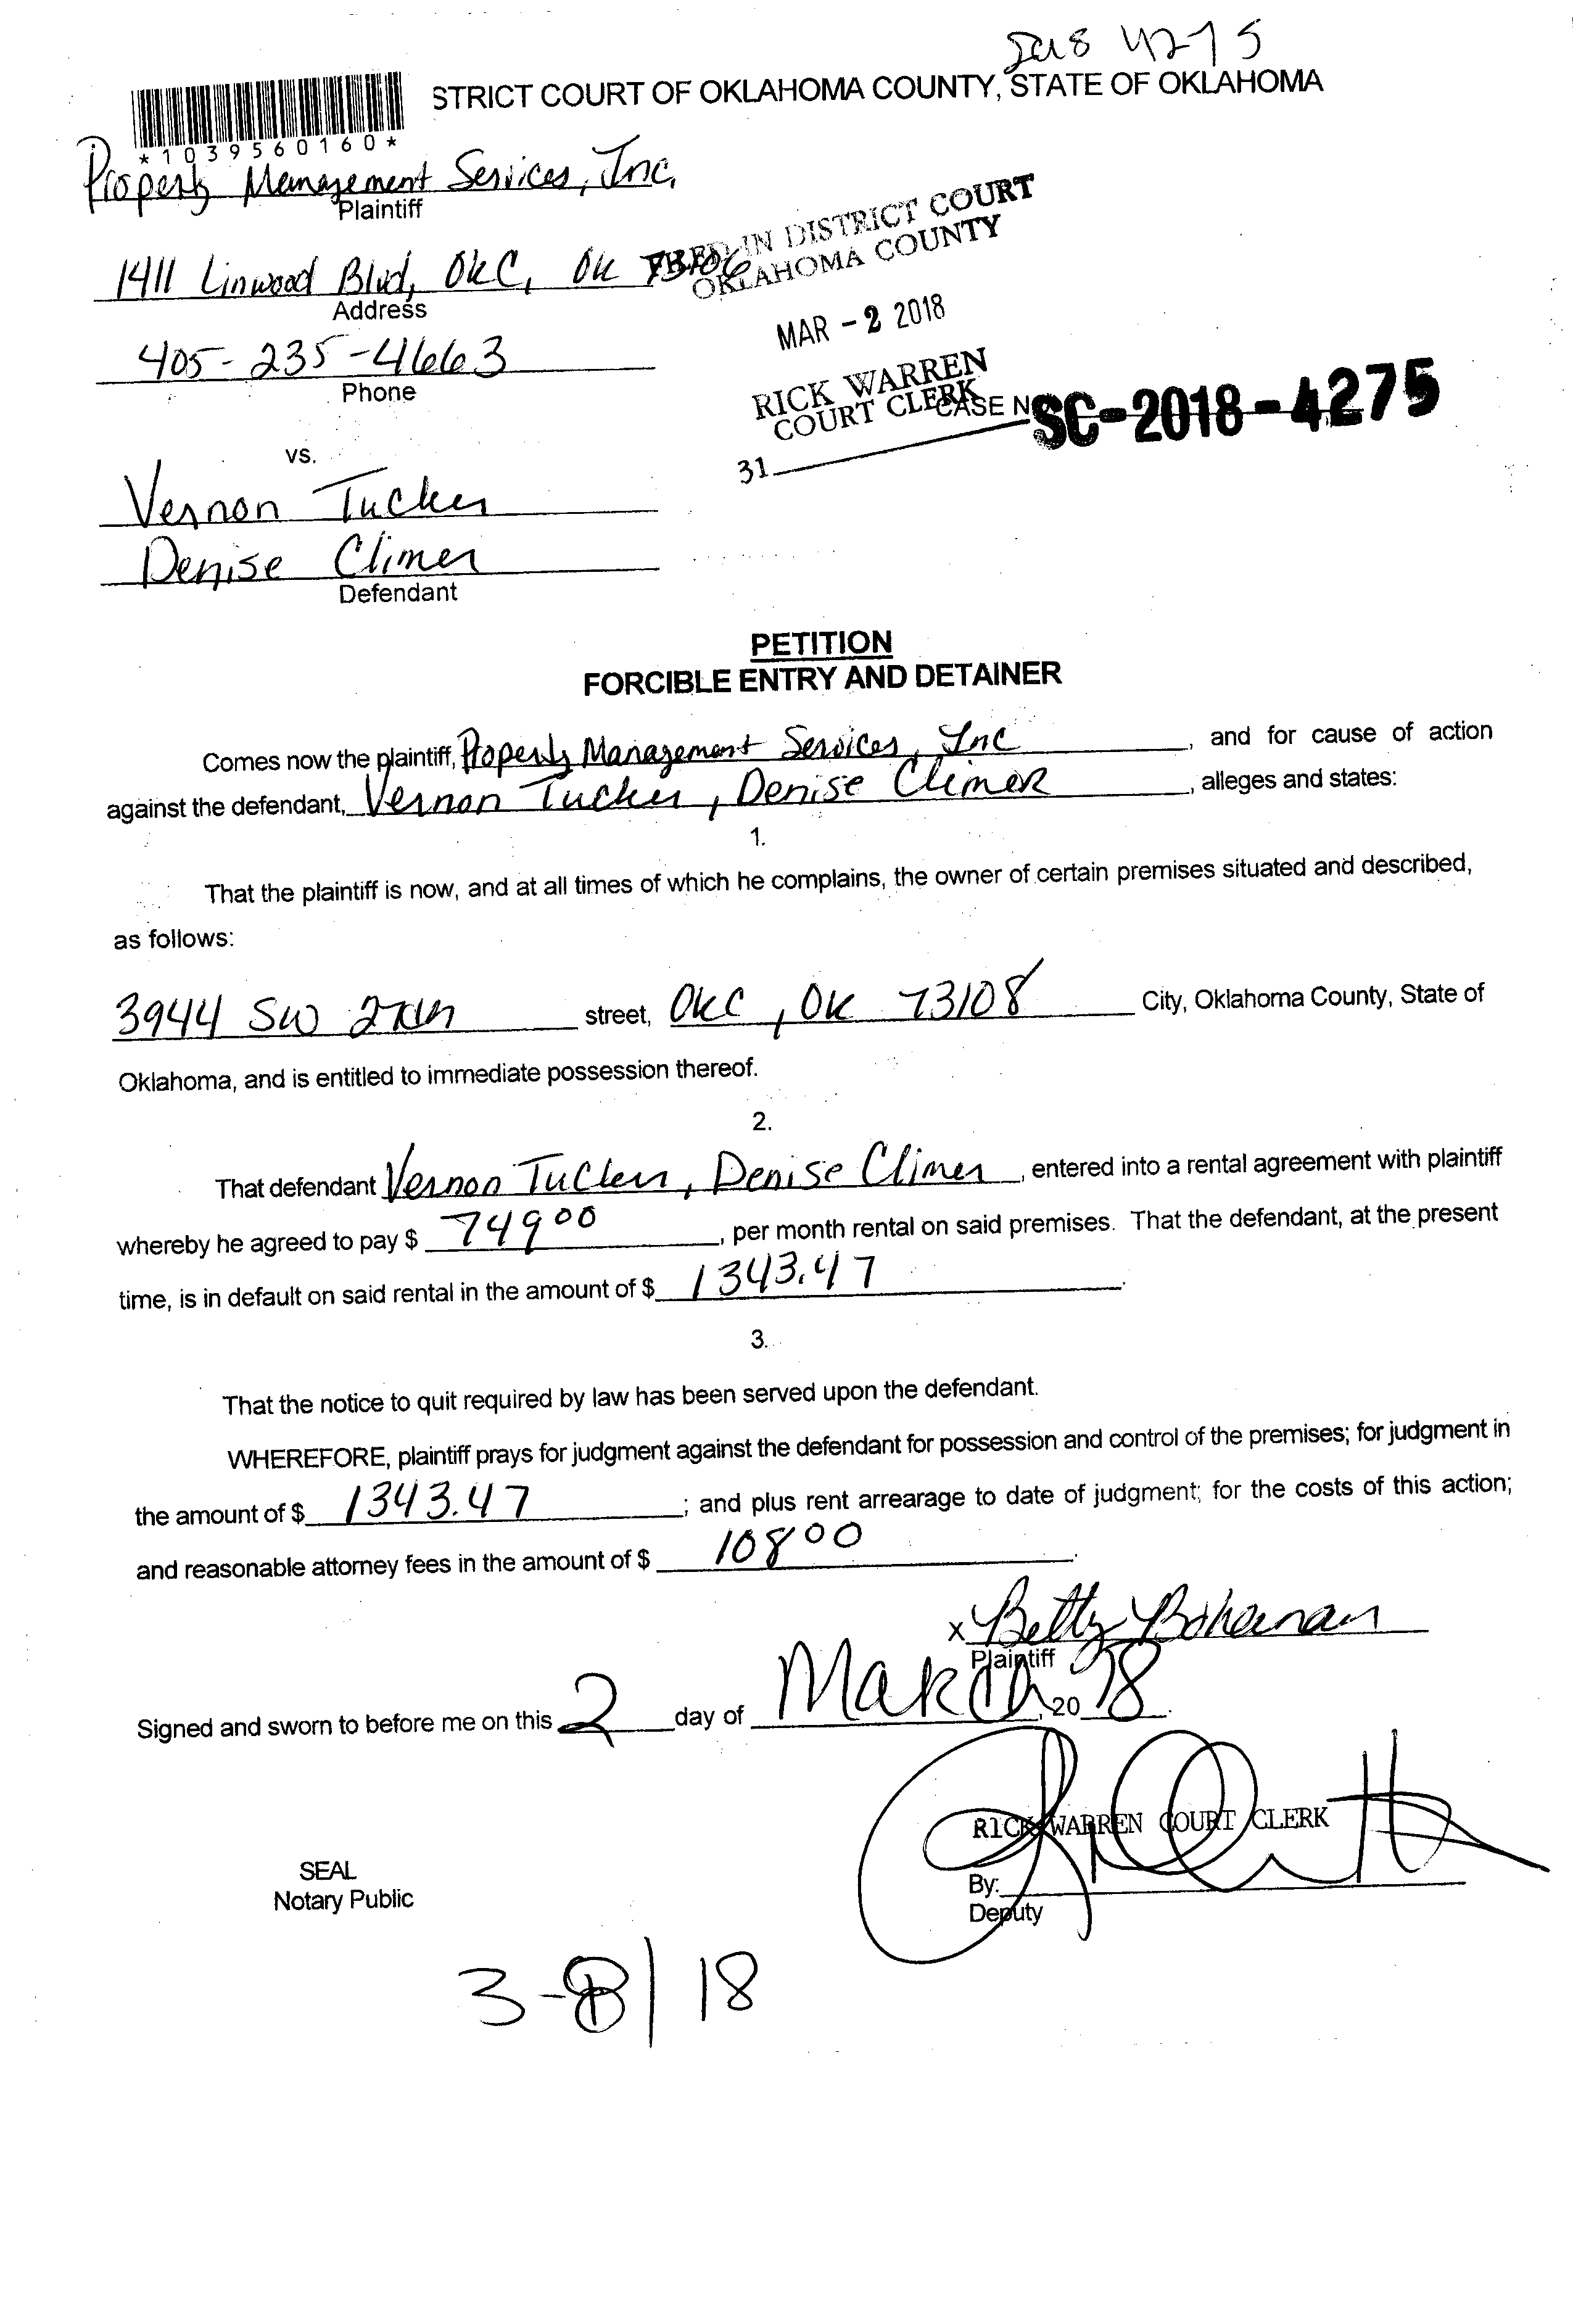 4275
STRICT COURT OF OKLAHOMA COUNTY, STATE OF OKLAHOMA
*1039560160*
Property Management Services, Inc.
Plaintiff
1411 Linwood Blvd, OKC, OK 73106
Address
FILED IN DISTRICT COURT
OKLAHOMA COUNTY
MAR - 2 2018
RICK WARREN
COURT CLERK
405-235-4663
Phone
CASE N SC-2018-4275
31
vs.
Vernon Tucker
Denise Climer
Defendant
PETITION
FORCIBLE ENTRY AND DETAINER
Comes now the plaintiff, Property Management Services, Inc, and for cause of action
against the defendant, Vernon Tucker, Denise Climer, alleges and states:
1.
That the plaintiff is now, and at all times of which he complains, the owner of certain premises situated and described,
as follows:
3944 SW street, OKC, OK 73108 City, Oklahoma County, State of
Oklahoma, and is entitled to immediate possession thereof.
2.
That defendant Vernon Tucker, Denise Climer, entered into a rental agreement with plaintiff
whereby he agreed to pay $ 749 00, per month rental on said premises. That the defendant, at the present
time, is in default on said rental in the amount of $ 1343.47.
3.
That the notice to quit required by law has been served upon the defendant.
WHEREFORE, plaintiff prays for judgment against the defendant for possession and control of the premises; for judgment in
the amount of $ 1343.47; and plus rent arrearage to date of judgment; for the costs of this action;
and reasonable attorney fees in the amount of $ 108 00.
x Betty Bohanan
Plaintiff
Signed and sworn to before me on this 2 day of March, 20 18.
RICK WARREN COURT CLERK
SEAL
Notary Public
By:
Deputy
3-8/18